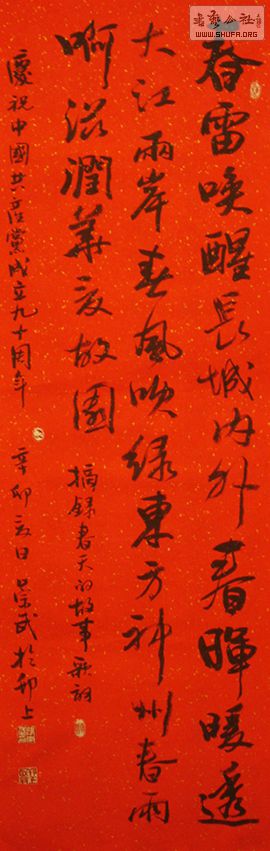 書藝公社
WWW.SHUFA.ORG
春雷唤醒長城内外春暉暖透
大江兩岸春風吹绿東方神州春雨
啊滋潤華夏故園
摘録春天的故事歌詞
慶祝中國共產黨成立九十周年 辛卯夏日 武於邗上